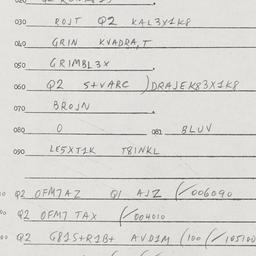 030 ROJT Q2 KAL3Y1K8
040 GRIN KVADRA,T
050 GRIMBL3X
060 Q2 S+VARC )DRAJEK83X1K8
070 BROJN
080 O 081 BLUV
090 LE5XT1K T8INKL
Q2 OFM7AZ Q1 AJZ (/006090
Q2 OFM7 TAX (/004010
Q2 G81S+R1B+ AVD1M (100 (/105100